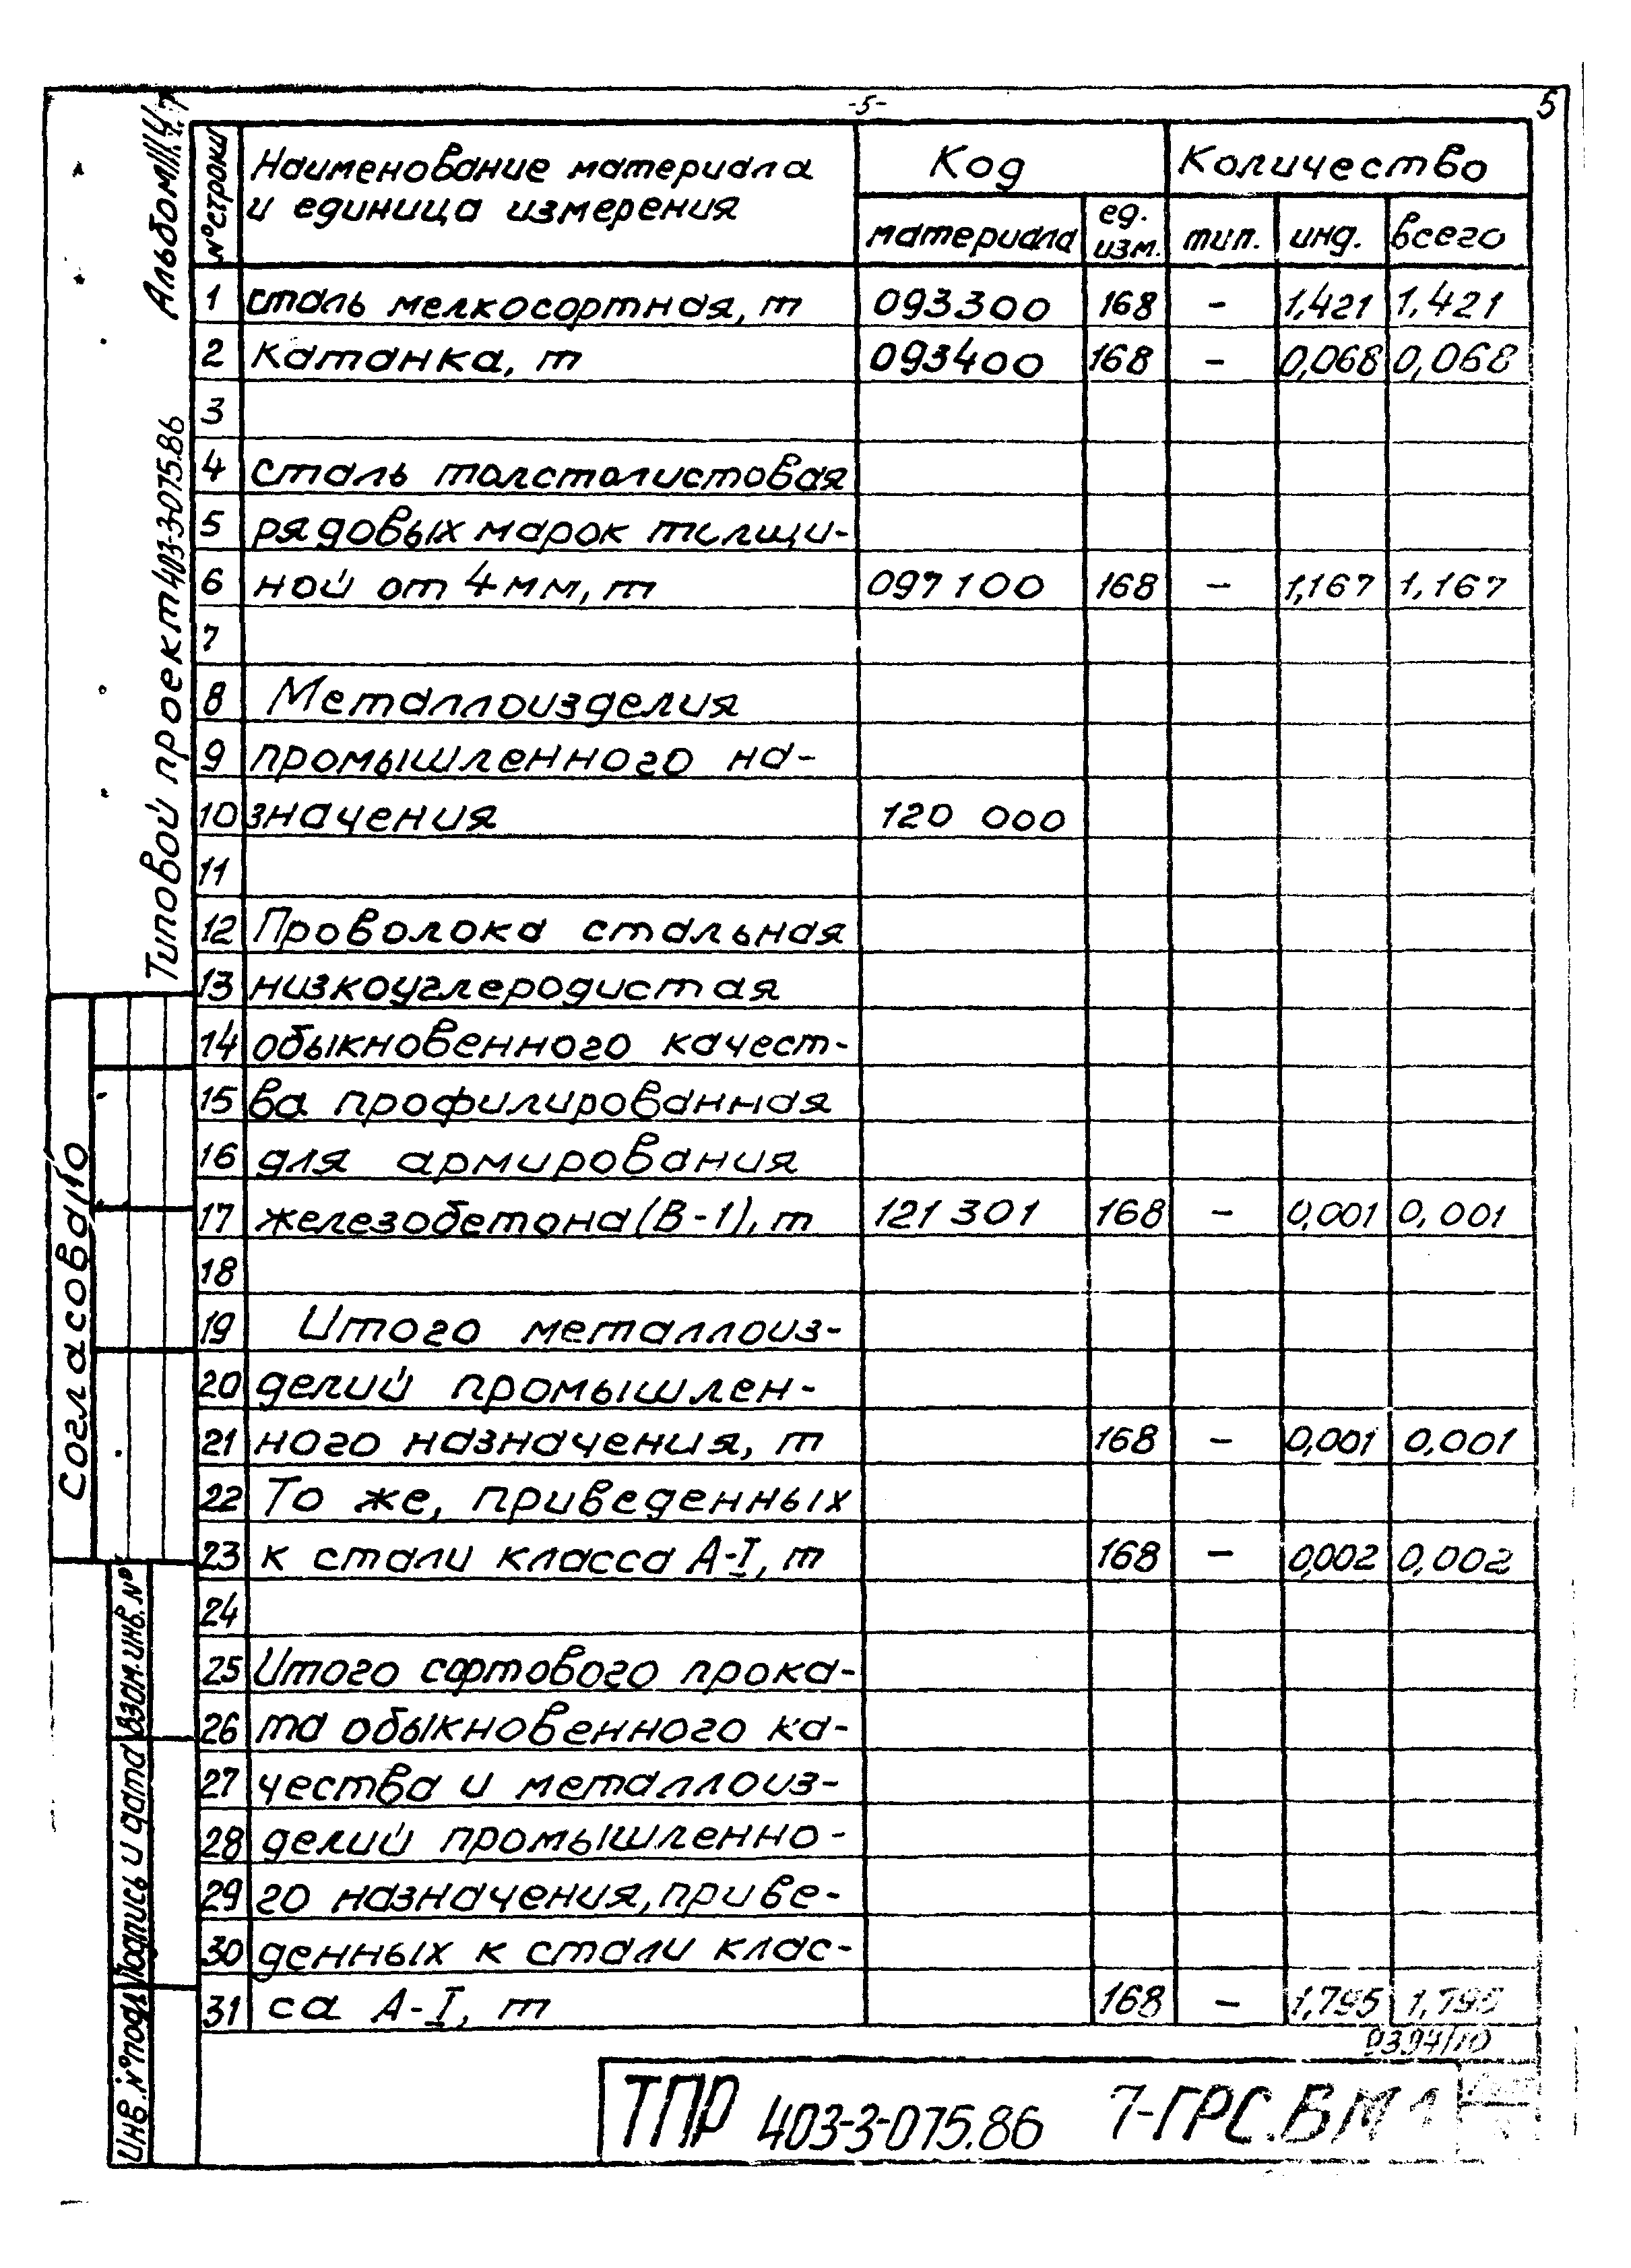 -5-
5
Типовой проект 403-3-075.86
№ строки
Наименование материала
и единица измерения
Код
Количество
материала
ед. изм.
тип.
инд.
всего
1 сталь мелкосортная, т 093300 168 - 1,421 1,421
2 Катанка, т 093400 168 - 0,068 0,068
3
4 Сталь толстолистовая
5 рядовых марок толщи-
6 ной от 4 мм, т 097100 168 - 1,167 1,167
7
8 Металлоизделия
9 промышленного на-
10 значения 120 000
11
12 Проволока стальная
13 низкоуглеродистая
14 обыкновенного качест-
15 ва профилированная
16 для армирования
17 железобетона (В-1), т 121 301 168 - 0,001 0,001
18
19 Итого металлоиз-
20 делий промышлен-
21 ного назначения, т 168 - 0,001 0,001
22 То же, приведенных
23 к стали класса А-I, т 168 - 0,002 0,002
24
25 Итого сортового прока-
26 та обыкновенного ка-
27 чества и металлоиз-
28 делий промышленно-
29 го назначения, приве-
30 денных к стали клас-
31 са А-I, т 168 - 1,795 1,795
Согласовано
Взам. инв. №
Подпись и дата
Инв. № подл
9394/10
ТПР 403-3-075.86 7-ГРС.ВМ1